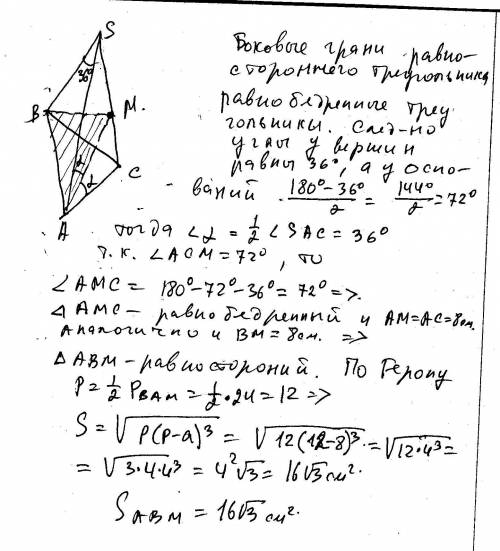 S
36°
B
M.
C
2 2
A
Боковые грани равно-
стороннего треугольника
равнобедренные треу
гольники. След-но
углы у вершин
равны 36°, а у осно-
ваний (180°-36°)/2 = 144°/2 = 72°
тогда ∠α = 1/2 ∠SAC = 36°
т.к. ∠ACM = 72°, то
∠AMC = 180°-72°-36° = 72° =>.
△AMC - равнобедренный и AM=AC=8см.
Аналогично и BM = 8см. =>
△ABM - равностороний. По Герону
P = 1/2 P_BAM = 1/2 · 24 = 12 =>
S = √(P(P-a)³) = √(12(12-8)³) = √(12·4³) =
= √(3·4·4³) = 4²√3 = 16√3 см².
S_ABM = 16√3 см².